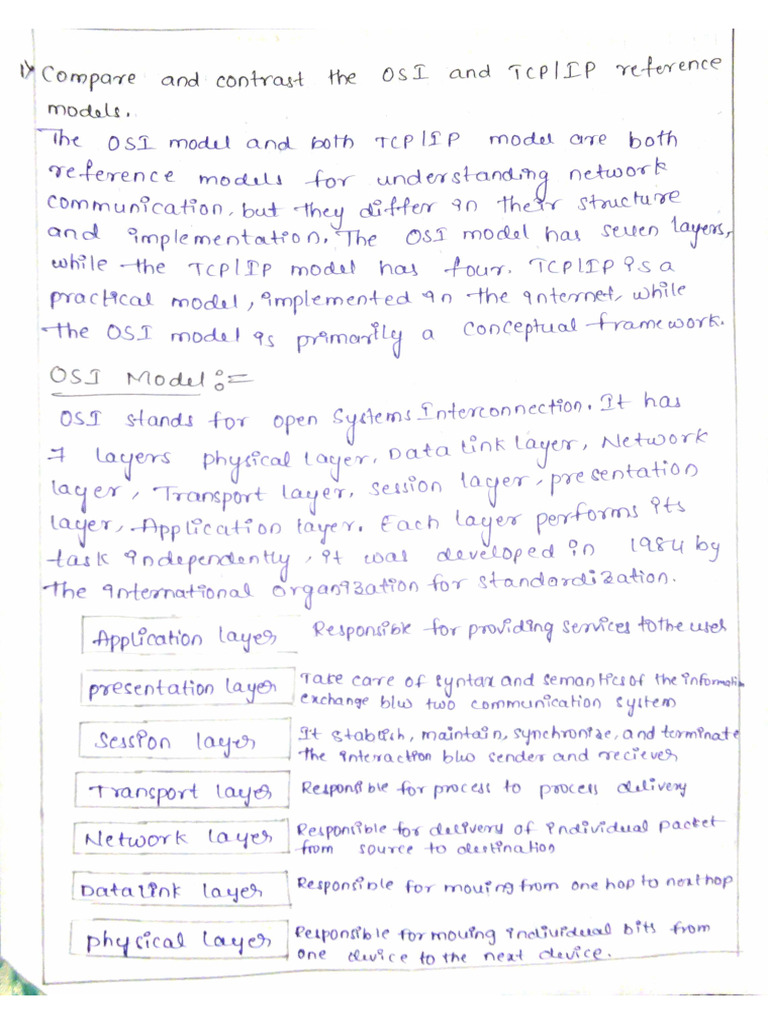 1) Compare and contrast the OSI and TCP/IP reference
models.
The OSI model and both TCP/IP model are both
reference models for understanding network
communication, but they differ in their structure
and implementation. The OSI model has seven layers,
while the TCP/IP model has four. TCP/IP is a
practical model, implemented in the internet, while
the OSI model is primarily a conceptual framework.
OSI Model :=
OSI stands for open Systems Interconnection. It has
7 layers physical layer, Data link layer, Network
layer, Transport layer, session layer, presentation
layer, Application layer. Each layer performs its
task independently, it was developed in 1984 by
the international organization for standardization.
Application layer Responsible for providing services to the user
presentation layer Take care of syntax and semantics of the informatio
exchange b/w two communication system
Session layer It stablish, maintain, synchronise, and terminate
the interaction b/w sender and reciever
Transport layer Responsible for process to process delivery
Network layer Responsible for delivery of individual packet
from source to destination
Data link layer Responsible for moving from one hop to next hop
physical layer Responsible for moving individual bits from
one device to the next device.